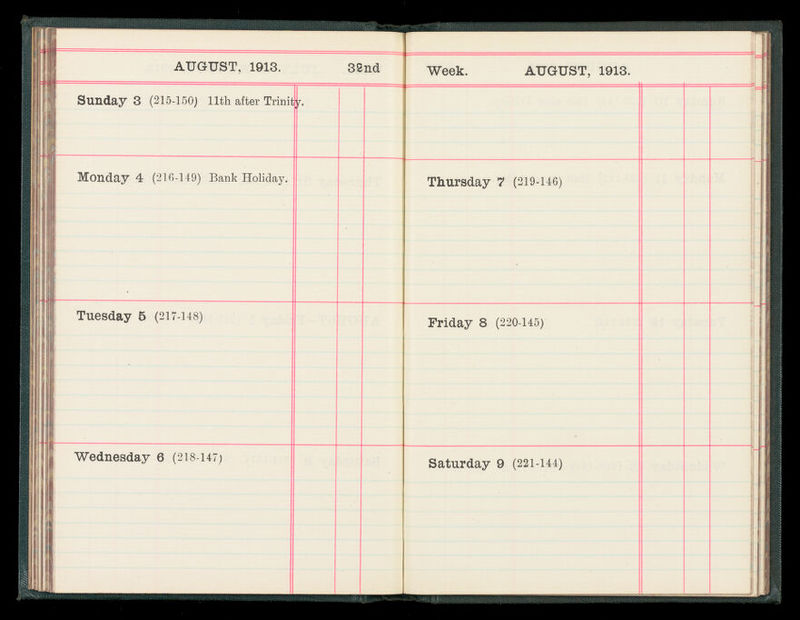 AUGUST, 1913. 32nd
Sunday 3 (215-150) 11th after Trinity.
Monday 4 (216-149) Bank Holiday.
Tuesday 5 (217-148)
Wednesday 6 (218-147)
Week. AUGUST, 1913.
Thursday 7 (219-146)
Friday 8 (220-145)
Saturday 9 (221-144)